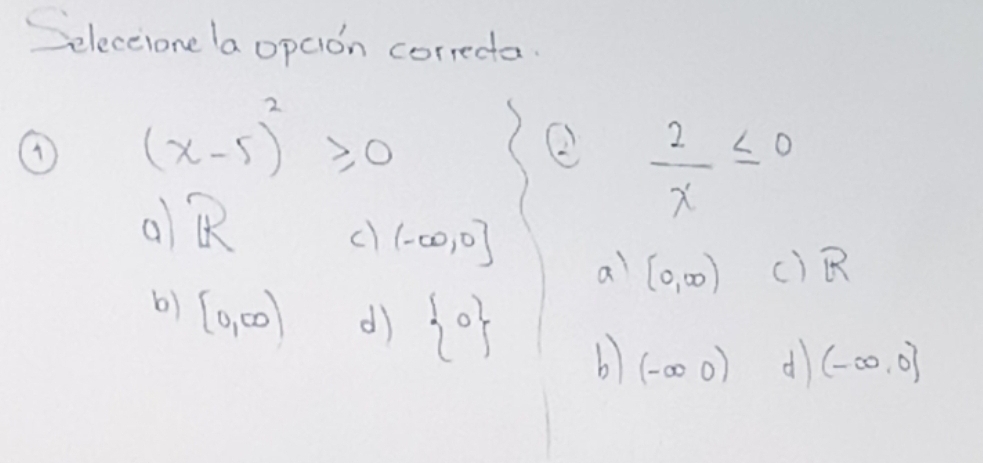 Seleccione la opción correcta.
① (x-5)² ≥ 0
a) ℝ c) (-∞,0]
b) [0,∞) d) {0}
② 2/x ≤ 0
a) [0,∞) c) ℝ
b) (-∞ 0) d) (-∞,0]